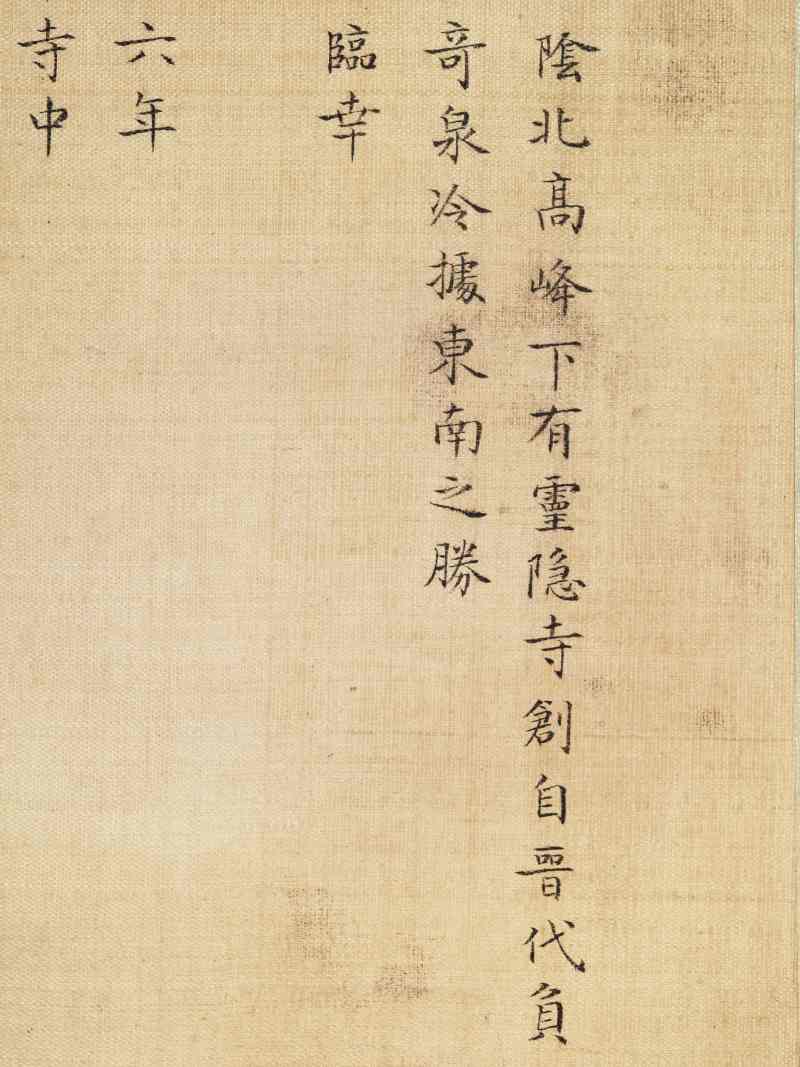 陰北高峰下有靈隐寺創自晉代負
竒泉冷據東南之勝
臨幸
六年
寺中